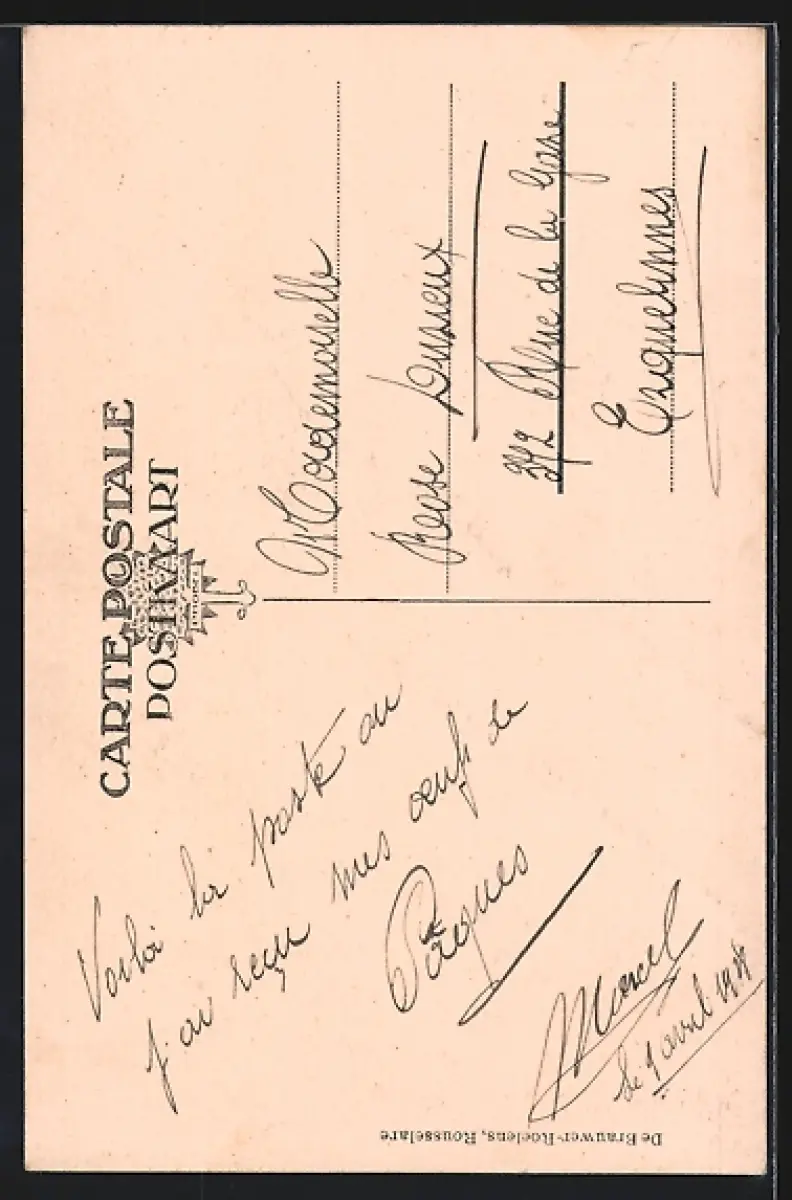 CARTE POSTALE
POSTKAART
Voilà la poste où
j'ai reçu mes oeufs de
Pâques
Marcel
le 9 avril
Mademoiselle
Rose Durieux
372 Rue de la Gare
Erquelinnes
De Brauwer-Roelens, Rousselare